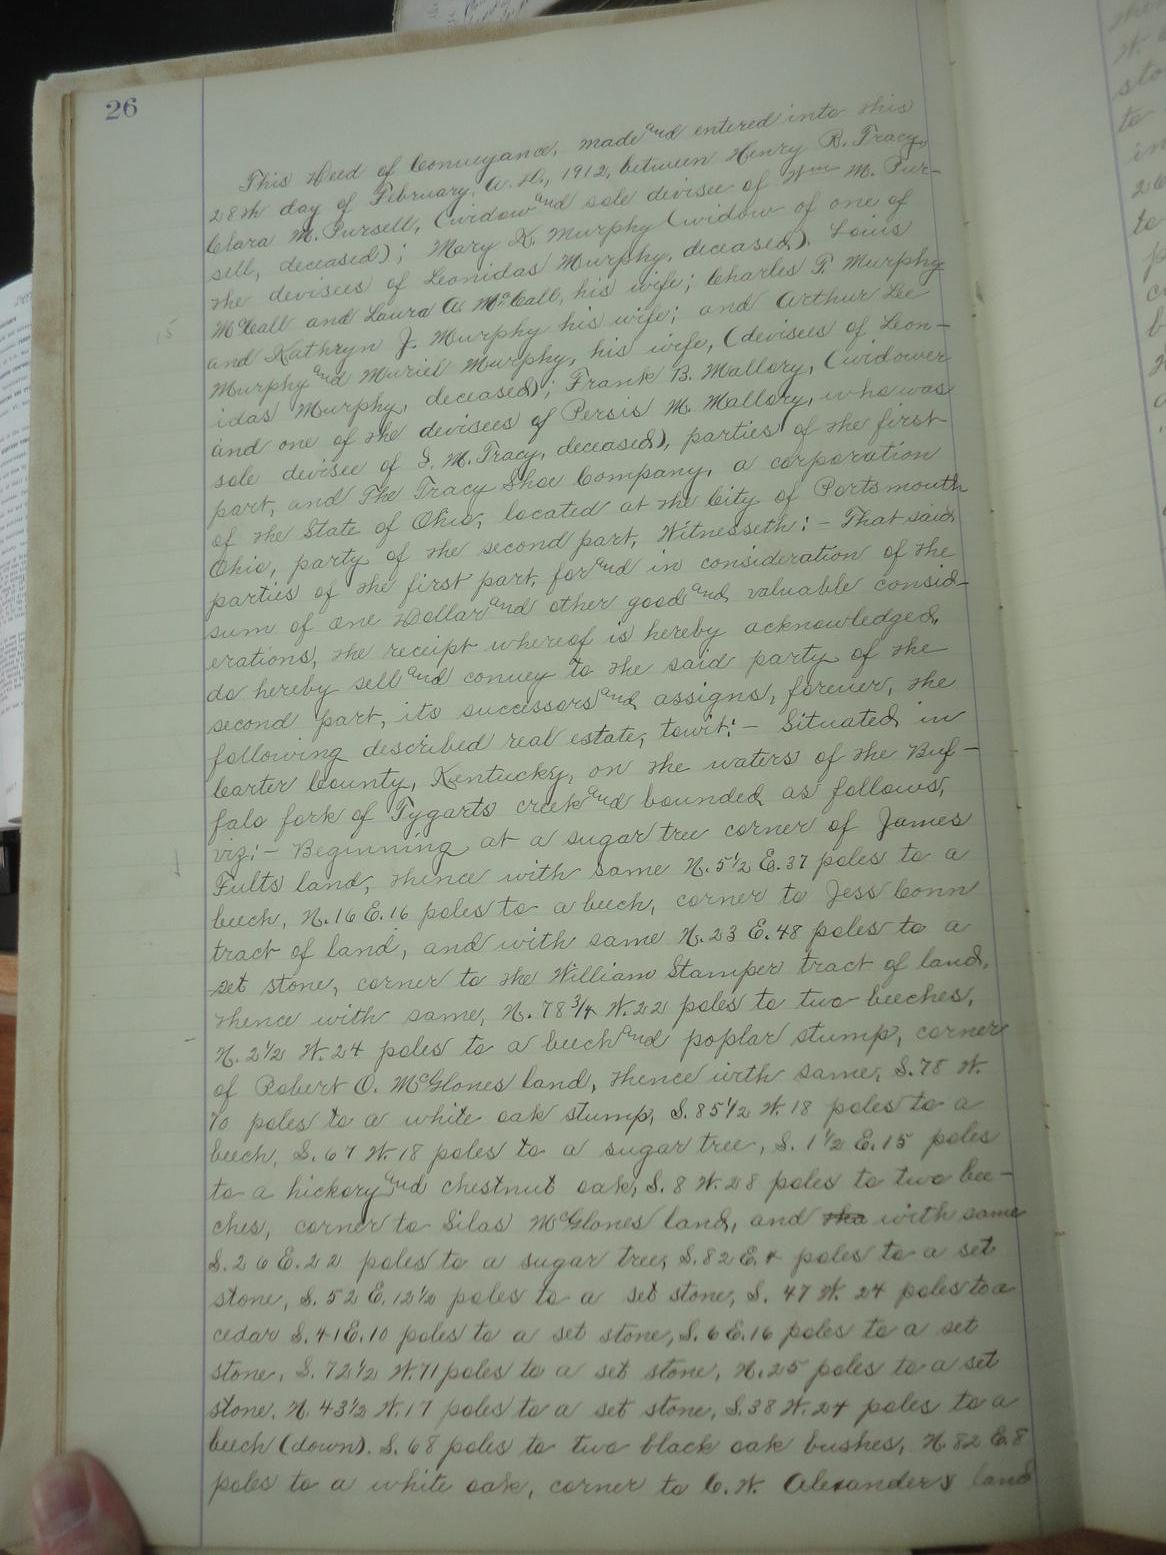 26
This Deed of Conveyance, made and entered into this
28th day of February, A. D., 1912, between Henry R. Tracy,
Clara M. Pursell, (widow and sole devisee of Wm M. Pur-
sell, deceased); Mary K. Murphy (widow of one of
the devisees of Leonidas Murphy, deceased). Louis
McCall and Laura A. McCall, his wife; Charles F. Murphy
and Kathryn J. Murphy his wife; and Arthur Lee
Murphy and Muriel Murphy, his wife, (devisees of Leon-
idas Murphy, deceased); Frank B. Mallory, (widower
and one of the devisees of Persis M. Mallory, who was
sole devisee of S. M. Tracy, deceased), parties of the first
part, and The Tracy Shoe Company, a corporation
of the State of Ohio, located at the City of Portsmouth
Ohio, party of the second part, Witnesseth:- That said
parties of the first part, for and in consideration of the
sum of One Dollar and other good and valuable consid-
erations, the receipt whereof is hereby acknowledged,
do hereby sell and convey to the said party of the
second part, its successors and assigns, forever, the
following described real estate, towit:- Situated in
Carter County, Kentucky, on the waters of the Buf-
falo fork of Tygarts creek and bounded as follows,
viz:- Beginning at a sugar tree corner of James
Fults land, thence with same N. 5 1/2 E. 37 poles to a
beech, N. 16 E. 16 poles to a beech, corner to Jess Conn
tract of land, and with same N. 23 E. 48 poles to a
set stone, corner to the William Stamper tract of land,
thence with same, N. 78 3/4 W. 22 poles to two beeches,
N. 2 1/2 W. 24 poles to a beech and poplar stump, corner
of Robert O. McGlones land, thence with same, S. 78 W.
70 poles to a white oak stump, S. 85 1/2 W. 18 poles to a
beech, S. 67 W. 18 poles to a sugar tree, S. 1 1/2 E. 15 poles
to a hickory and chestnut oak, S. 8 W. 28 poles to two bee-
ches, corner to Silas McGlones land, and tha with same
S. 26 E. 22 poles to a sugar tree, S. 82 E. 4 poles to a set
stone, S. 52 E. 12 1/2 poles to a set stone, S. 47 W. 24 poles to a
cedar S. 41 E. 10 poles to a set stone, S. 6 E. 16 poles to a set
stone, S. 72 1/2 W. 71 poles to a set stone, N. 25 poles to a set
stone, N. 43 1/2 W. 17 poles to a set stone, S. 38 W. 24 poles to a
beech (down). S. 68 poles to two black oak bushes, N. 82 E. 8
poles to a white oak, corner to C. W. Alexanders land